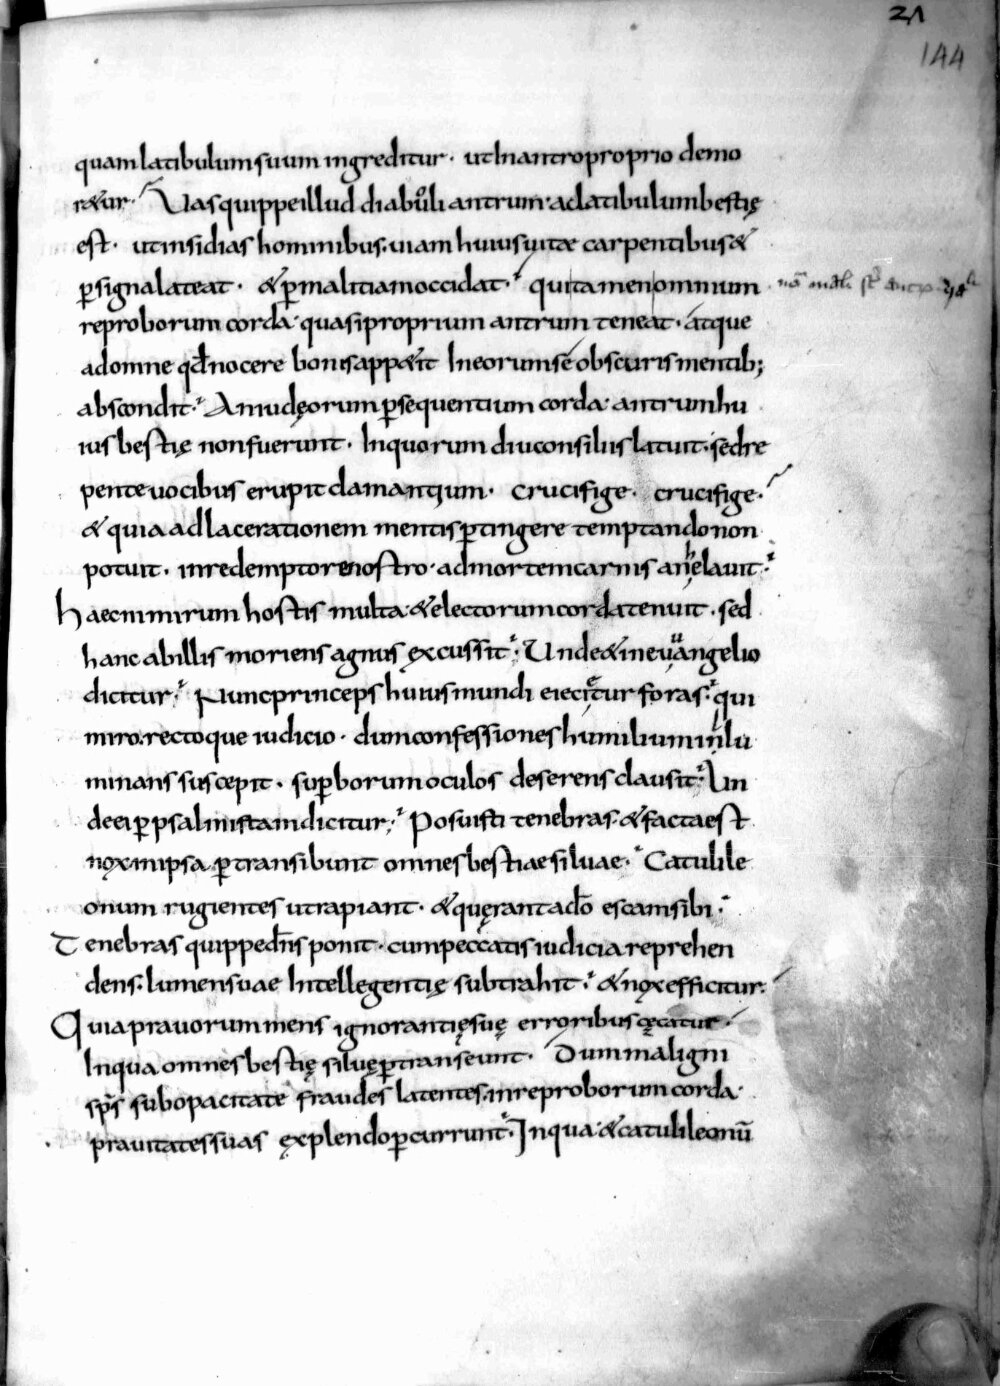 21
144
quam latibulum suum ingreditur · ut In antro proprio demo
r&ur · Uas quippe illud diabuoli antrum · ad latibulum bestię
est · ut insidias hominibus · uiam huius uitae carpentibus &
p signa lateat · & p malitiam occidat · qui tamen omnium
reproborum corda · quasi proprium antrum teneat · atque
ad omne qđ nocere bonis app&it In eorum se obscuris mentib;
abscondit · An iudęorum psequentium corda · antrum hu
ius bestię non fuerunt · In quorum diu consiliis latuit · sed re
pente uocibus erupit clamantium · crucifige · crucifige ·
& quia ad lacerationem mentis ptingere temptando non
potuit · in redemptore nostro · ad mortem carnis anhelauit ·
haec nimirum hostis multa · & electorum corda tenuit · sed
hanc ab illis moriens agnus excussit · Unde & in euuangelio
dicitur · Nunc princeps huius mundi eiecitur foras · qui
miro rectoque iudicio · dum confessiones humilium inlu
minans suscepit · supborum oculos deserens clausit · Un
de ei p psalmistam dicitur · Posuisti tenebras · & facta est
nox in ipsa ptransibunt omnes bestiae siluae · Catuli le
onum rugientes ut rapiant · & quęrant a do escam sibi ·
Tenebras quippe dns ponit · cum peccatis iudicia reprehen
dens · lumen suae Intellegentię subtrahit · & nox efficitur ·
Quia prauorum mens ignorantię suę erroribus cęcatur ·
In qua omnes bestię siluę ptranseunt · Dum maligni
sps sub opacitate fraudes latentes · in reproborum corda ·
prauitates suas explendo pcurrunt · In qua · & catuli leonū